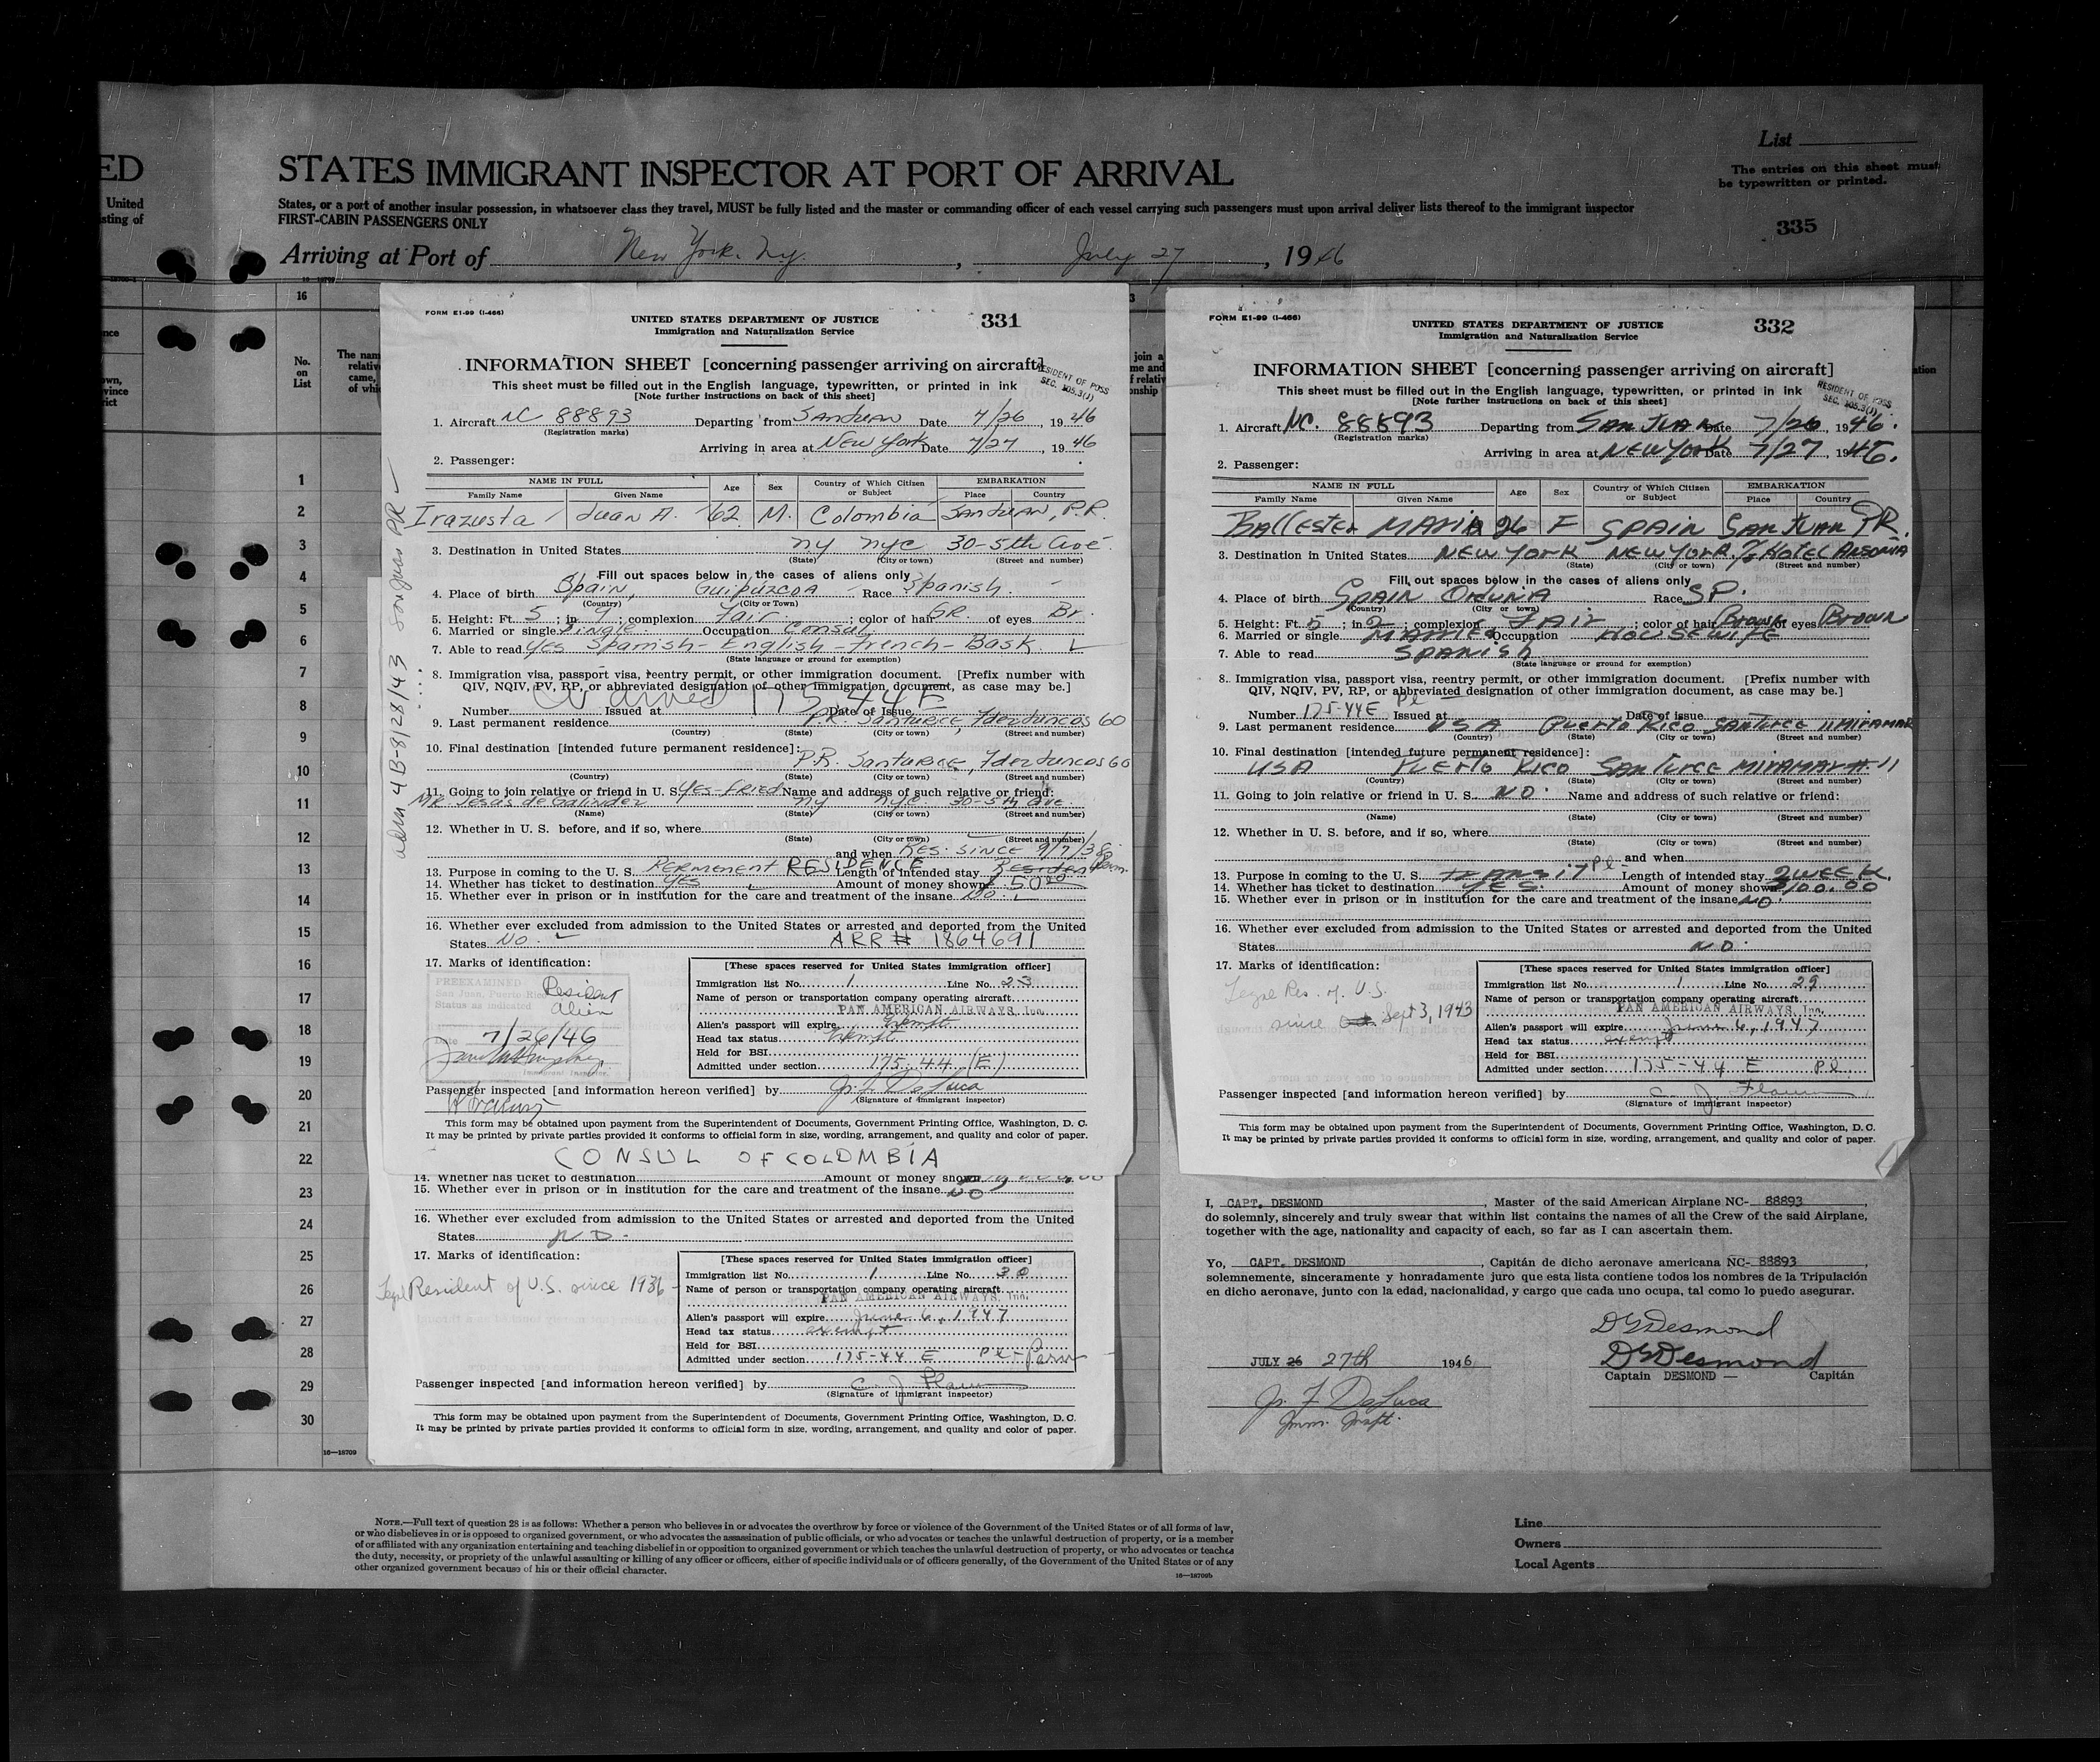 ED
United
sting of
STATES IMMIGRANT INSPECTOR AT PORT OF ARRIVAL
States, or a part of another insular possession, in whatsoever class they travel, MUST be fully listed and the master or commanding officer of each vessel carrying such passengers must upon arrival deliver lists thereof to the immigrant inspector
FIRST-CABIN PASSENGERS ONLY
List
The entries on this sheet must
be typewritten or printed.
335
Arriving at Port of New York. N.y. , July 27 , 1946
16
No.
on
List
1
2
3
4
5
6
7
8
9
10
11
12
13
14
15
16
17
18
19
20
21
22
23
24
25
26
27
28
29
30
16—18709
FORM E1-99 (I-466)
331
UNITED STATES DEPARTMENT OF JUSTICE
Immigration and Naturalization Service
INFORMATION SHEET [concerning passenger arriving on aircraft]
RESIDENT OF POSS
SEC. 105.3(J)
This sheet must be filled out in the English language, typewritten, or printed in ink
[Note further instructions on back of this sheet]
1. Aircraft NC 88893 Departing from San Juan Date 7/26, 1946
(Registration marks)
Arriving in area at New York Date 7/27, 1946
2. Passenger:
NAME IN FULL Age Sex Country of Which Citizen or Subject EMBARKATION
Family Name Given Name Place Country
Irazusta Juan A. 62 M. Colombia San Juan, P.R.
3. Destination in United States ny nyc 30-5th ave.
(State) (City or town) (Street and number)
Fill out spaces below in the cases of aliens only
4. Place of birth Spain, Guipúzcoa Race Spanish.
(Country) (City or Town)
5. Height: Ft. 5; in 9; complexion Fair; color of hair GR. of eyes Br.
6. Married or single Single. Occupation Consul
7. Able to read Yes Spanish- English- French- Bask.
(State language or ground for exemption)
8. Immigration visa, passport visa, reentry permit, or other immigration document. [Prefix number with
QIV, NQIV, PV, RP, or abbreviated designation of other immigration document, as case may be.]
Number Waived Issued at 175.44E Date of Issue
9. Last permanent residence P.R. Santurce, 60
(Country) (State) (City or town) (Street and number)
10. Final destination [intended future permanent residence]:
P.R. Santurce, 60
(Country) (State) (City or town) (Street and number)
11. Going to join relative or friend in U. S. Yes-Fried Name and address of such relative or friend:
Mr. Jesús de Galindez ny nyc. 30-5th ave.
(Name) (State) (City or town) (Street and number)
12. Whether in U. S. before, and if so, where
(State) (City or town) (Street and number)
and when Res. since 9/7/38
13. Purpose in coming to the U. S. Permenent Residence Length of intended stay Resident Perm.
14. Whether has ticket to destination Yes Amount of money shown $ 50.00
15. Whether ever in prison or in institution for the care and treatment of the insane No.
16. Whether ever excluded from admission to the United States or arrested and deported from the United
States No. ARR # 1864691
17. Marks of identification:
PREEXAMINED
San Juan, Puerto Rico
Status as indicated
Resident
alien
Date 7/26/46
Immigrant Inspector.
[These spaces reserved for United States immigration officer]
Immigration list No. 1 Line No. 23
Name of person or transportation company operating aircraft
PAN AMERICAN AIRWAYS, Inc.
Alien's passport will expire Exempt.
Head tax status Exempt
Held for BSI
Admitted under section 175.44 (E)
Passenger inspected [and information hereon verified] by Jr. F. DeLuca
(Signature of immigrant inspector)
This form may be obtained upon payment from the Superintendent of Documents, Government Printing Office, Washington, D. C.
It may be printed by private parties provided it conforms to official form in size, wording, arrangement, and quality and color of paper.
CONSUL OF COLOMBIA
adm 4B-8/28/43 San Juan PR
14. Whether has ticket to destination Amount of money shown
15. Whether ever in prison or in institution for the care and treatment of the insane NO
16. Whether ever excluded from admission to the United States or arrested and deported from the United
States NO.
17. Marks of identification:
Legal Resident of U.S. since 1936
[These spaces reserved for United States immigration officer]
Immigration list No. 1 Line No. 30
Name of person or transportation company operating aircraft
PAN AMERICAN AIRWAYS, Inc.
Alien's passport will expire June 6, 1947
Head tax status exempt
Held for BSI
Admitted under section 175-44 E Pl-Perm
Passenger inspected [and information hereon verified] by C. J. Flaum
(Signature of immigrant inspector)
This form may be obtained upon payment from the Superintendent of Documents, Government Printing Office, Washington, D. C.
It may be printed by private parties provided it conforms to official form in size, wording, arrangement, and quality and color of paper.
FORM E1-99 (I-466)
332
UNITED STATES DEPARTMENT OF JUSTICE
Immigration and Naturalization Service
INFORMATION SHEET [concerning passenger arriving on aircraft]
RESIDENT OF POSS
SEC. 105.3(J)
This sheet must be filled out in the English language, typewritten, or printed in ink
[Note further instructions on back of this sheet]
1. Aircraft NC. 88893 Departing from San Juan Date 7/26, 1946.
(Registration marks)
Arriving in area at New York Date 7/27, 1946.
2. Passenger:
NAME IN FULL Age Sex Country of Which Citizen or Subject EMBARKATION
Family Name Given Name Place Country
Ballester Maria 26 F SPAIN San Juan PR.
3. Destination in United States New York New York, % Hotel Ansonia
(State) (City or town) (Street and number)
Fill out spaces below in the cases of aliens only
4. Place of birth Spain Orduña Race SP.
(Country) (City or town)
5. Height: Ft. 5; in 2; complexion Fair; color of hair Brown of eyes Brown
6. Married or single Married Occupation Housewife
7. Able to read Spanish
(State language or ground for exemption)
8. Immigration visa, passport visa, reentry permit, or other immigration document. [Prefix number with
QIV, NQIV, PV, RP, or abbreviated designation of other immigration document, as case may be.]
Number 175-44E Pl Issued at Date of issue
9. Last permanent residence USA Puerto Rico Santurce 11 Miramar
(Country) (State) (City or town) (Street and number)
10. Final destination [intended future permanent residence]:
USA Puerto Rico Santurce Miramar # 11
(Country) (State) (City or town) (Street and number)
11. Going to join relative or friend in U. S. NO. Name and address of such relative or friend:
(Name) (State) (City or town) (Street and number)
12. Whether in U. S. before, and if so, where
(State) (City or town) (Street and number)
and when
13. Purpose in coming to the U. S. Transit Pl- Length of intended stay 2 week.
14. Whether has ticket to destination YES. Amount of money shown $100.00
15. Whether ever in prison or in institution for the care and treatment of the insane NO.
16. Whether ever excluded from admission to the United States or arrested and deported from the United
States NO.
17. Marks of identification:
Legal Res. of U.S.
since Sept 3, 1943
[These spaces reserved for United States immigration officer]
Immigration list No. 1 Line No. 29
Name of person or transportation company operating aircraft
PAN AMERICAN AIRWAYS, Inc.
Alien's passport will expire June 6, 1947
Head tax status exempt
Held for BSI
Admitted under section 175-44 E Pl.
Passenger inspected [and information hereon verified] by C. J. Flaum
(Signature of immigrant inspector)
This form may be obtained upon payment from the Superintendent of Documents, Government Printing Office, Washington, D. C.
It may be printed by private parties provided it conforms to official form in size, wording, arrangement, and quality and color of paper.
I, CAPT. DESMOND, Master of the said American Airplane NC- 88893,
do solemnly, sincerely and truly swear that within list contains the names of all the Crew of the said Airplane,
together with the age, nationality and capacity of each, so far as I can ascertain them.
Yo, CAPT. DESMOND, Capitán de dicho aeronave americana NC- 88893,
solemnemente, sinceramente y honradamente juro que esta lista contiene todos los nombres de la Tripulación
en dicho aeronave, junto con la edad, nacionalidad, y cargo que cada uno ocupa, tal como lo puedo asegurar.
DGDesmond
JULY 26 27th 1946
DGDesmond
Captain DESMOND — Capitán
Jr. F DeLuca
Imm. Inspt.
NOTE.—Full text of question 28 is as follows: Whether a person who believes in or advocates the overthrow by force or violence of the Government of the United States or of all forms of law,
or who disbelieves in or is opposed to organized government, or who advocates the assassination of public officials, or who advocates or teaches the unlawful destruction of property, or is a member
of or affiliated with any organization entertaining and teaching disbelief in or opposition to organized government or which teaches the unlawful destruction of property, or who advocates or teaches
the duty, necessity, or propriety of the unlawful assaulting or killing of any officer or officers, either of specific individuals or of officers generally, of the Government of the United States or of any
other organized government because of his or their official character.
16—18709b
Line
Owners
Local Agents